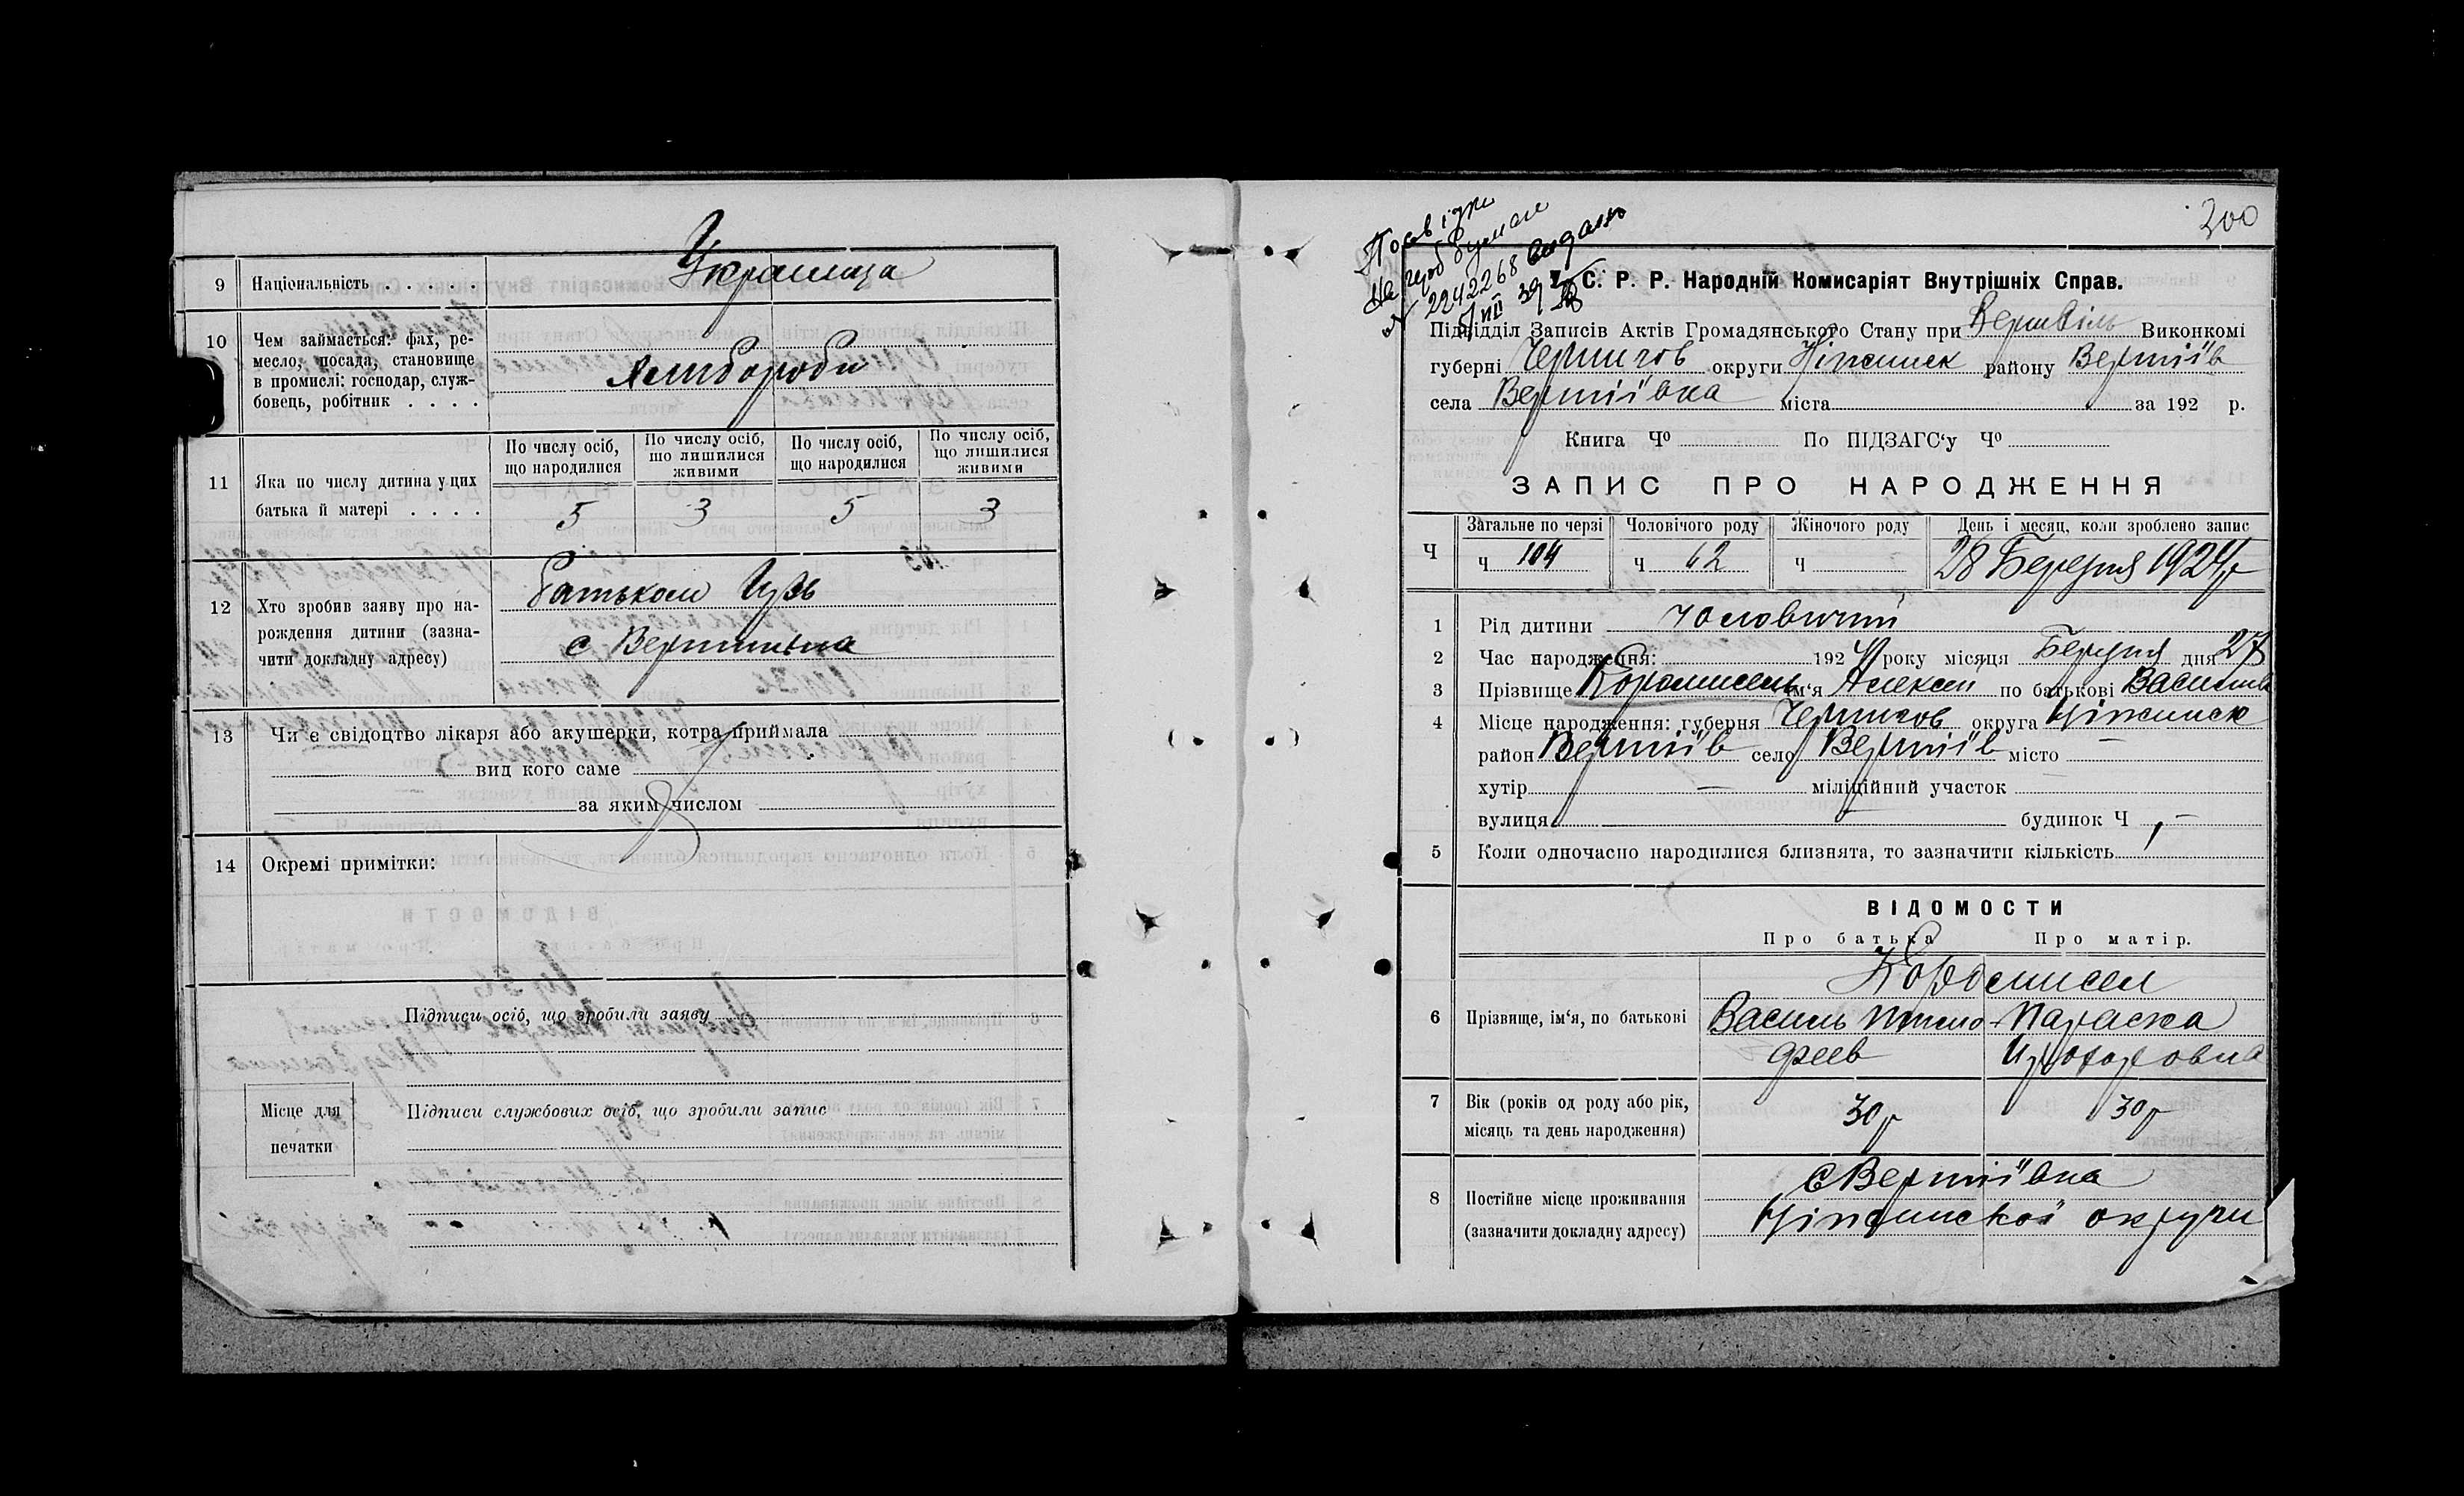 9 Національність . . . . . Украинца
10 Чем займається: фах, ре-
месло, посада, становище
в промислі: господар, служ-
бовець, робітник . . . .
Хлибороби
11 Яка по числу дитина у цих
батька й матері . . . .
По числу осіб, що народилися
По числу осіб, що лишилися живими
По числу осіб, що народилися
По числу осіб, що лишилися живими
5 3 5 3
12 Хто зробив заяву про на-
рождення дитини (зазна-
чити докладну адресу)
батьком
с
13 Чи є свідоцтво лікаря або акушерки, котра приймала
вид кого саме
за яким числом
14 Окремі примітки:
Підписи осіб, що зробили заяву
Місце для
печатки
Підписи службових осіб, що зробили запис
300
№ 2242268 видано
У. С. Р. Р. Народній Комисаріят Внутрішніх Справ.
Підвідділ Записів Актів Громадянського Стану при Виконкомі
губерні Чернигов округи Ніжинск району Вертіїв
села Вертіївка міста за 192 р.
Книга Чо По ПІДЗАГС‘у Чо
ЗАПИС ПРО НАРОДЖЕННЯ
Ч
Загальне по черзі Чоловічого роду Жіночого роду День і месяц, коли зроблено запис
ч 104 ч 62 ч 28 Березня 1924 р
1 Рід дитини Чоловичий
2 Час народження: 1924 року місяця Березня дня 27
3 Прізвище Коромисель ім‘я Алексей по батькові
4 Місце народження: губерня Чернигов округа Ніжинск
район Вертіїв село Вертіїв місто —
хутір — міліційний участок
вулиця — будинок Ч —
5 Коли одночасно народилися близнята, то зазначити кількість
ВІДОМОСТИ
Про батька Про матір.
Коромисел
6 Прізвище, ім‘я, по батькові Василь Тимо- Параска
феев
7 Вік (років од роду або рік,
місяць та день народження)
30 р 30 р
8 Постійне місце проживання
(зазначити докладну адресу)
с Вертіївка
Ніжинскої округи